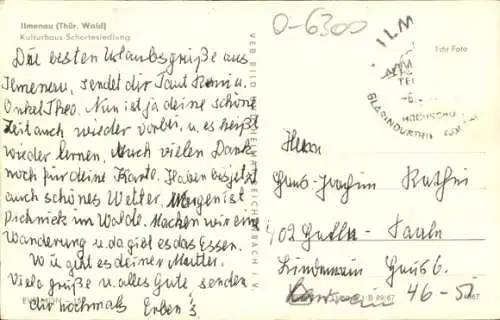 Ilmenau (Thür. Wald)
Kulturhaus Schortesiedlung
O-6300
Echt Foto
Die besten Urlaubsgrüße aus
Ilmenau, sendet dir Tant Romi u.
Onkel Theo. Nun ist ja deine schöne
Zeit auch wieder vorbei, u. es heißt
wieder lernen. Auch vielen Dank
noch für deine Karte. Haben bis jetzt
auch schönes Wetter. Morgen ist
Pichnick im Walde. Machen wir eine
Wanderung u. da gibt es das Essen.
Wo wie geht es deiner Mutter.
Viele grüße u. alles Gute senden
dir nochmals Erben's
VEB BILD HEIMAT REICHENBACH I. V.
ILM
HOCHSCHU
GLASINDUSTRIE
Herrn
Hans-Joachim
402 Halle - Saale
Lindenhein Haus 6.
46-51